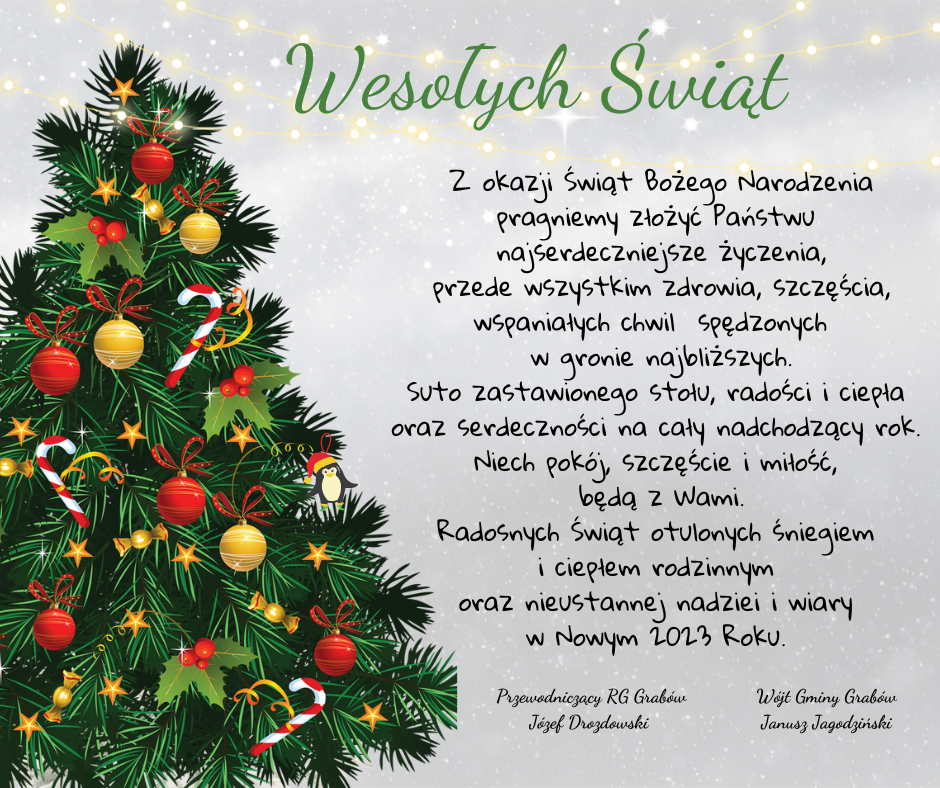 Wesołych Świąt
Z okazji Świąt Bożego Narodzenia
pragniemy złożyć Państwu
najserdeczniejsze życzenia,
przede wszystkim zdrowia, szczęścia,
wspaniałych chwil spędzonych
w gronie najbliższych.
Suto zastawionego stołu, radości i ciepła
oraz serdeczności na cały nadchodzący rok.
Niech pokój, szczęście i miłość,
będą z Wami.
Radosnych Świąt otulonych śniegiem
i ciepłem rodzinnym
oraz nieustannej nadziei i wiary
w Nowym 2023 Roku.
Przewodniczący RG Grabów
Józef Drozdowski
Wójt Gminy Grabów
Janusz Jagodziński